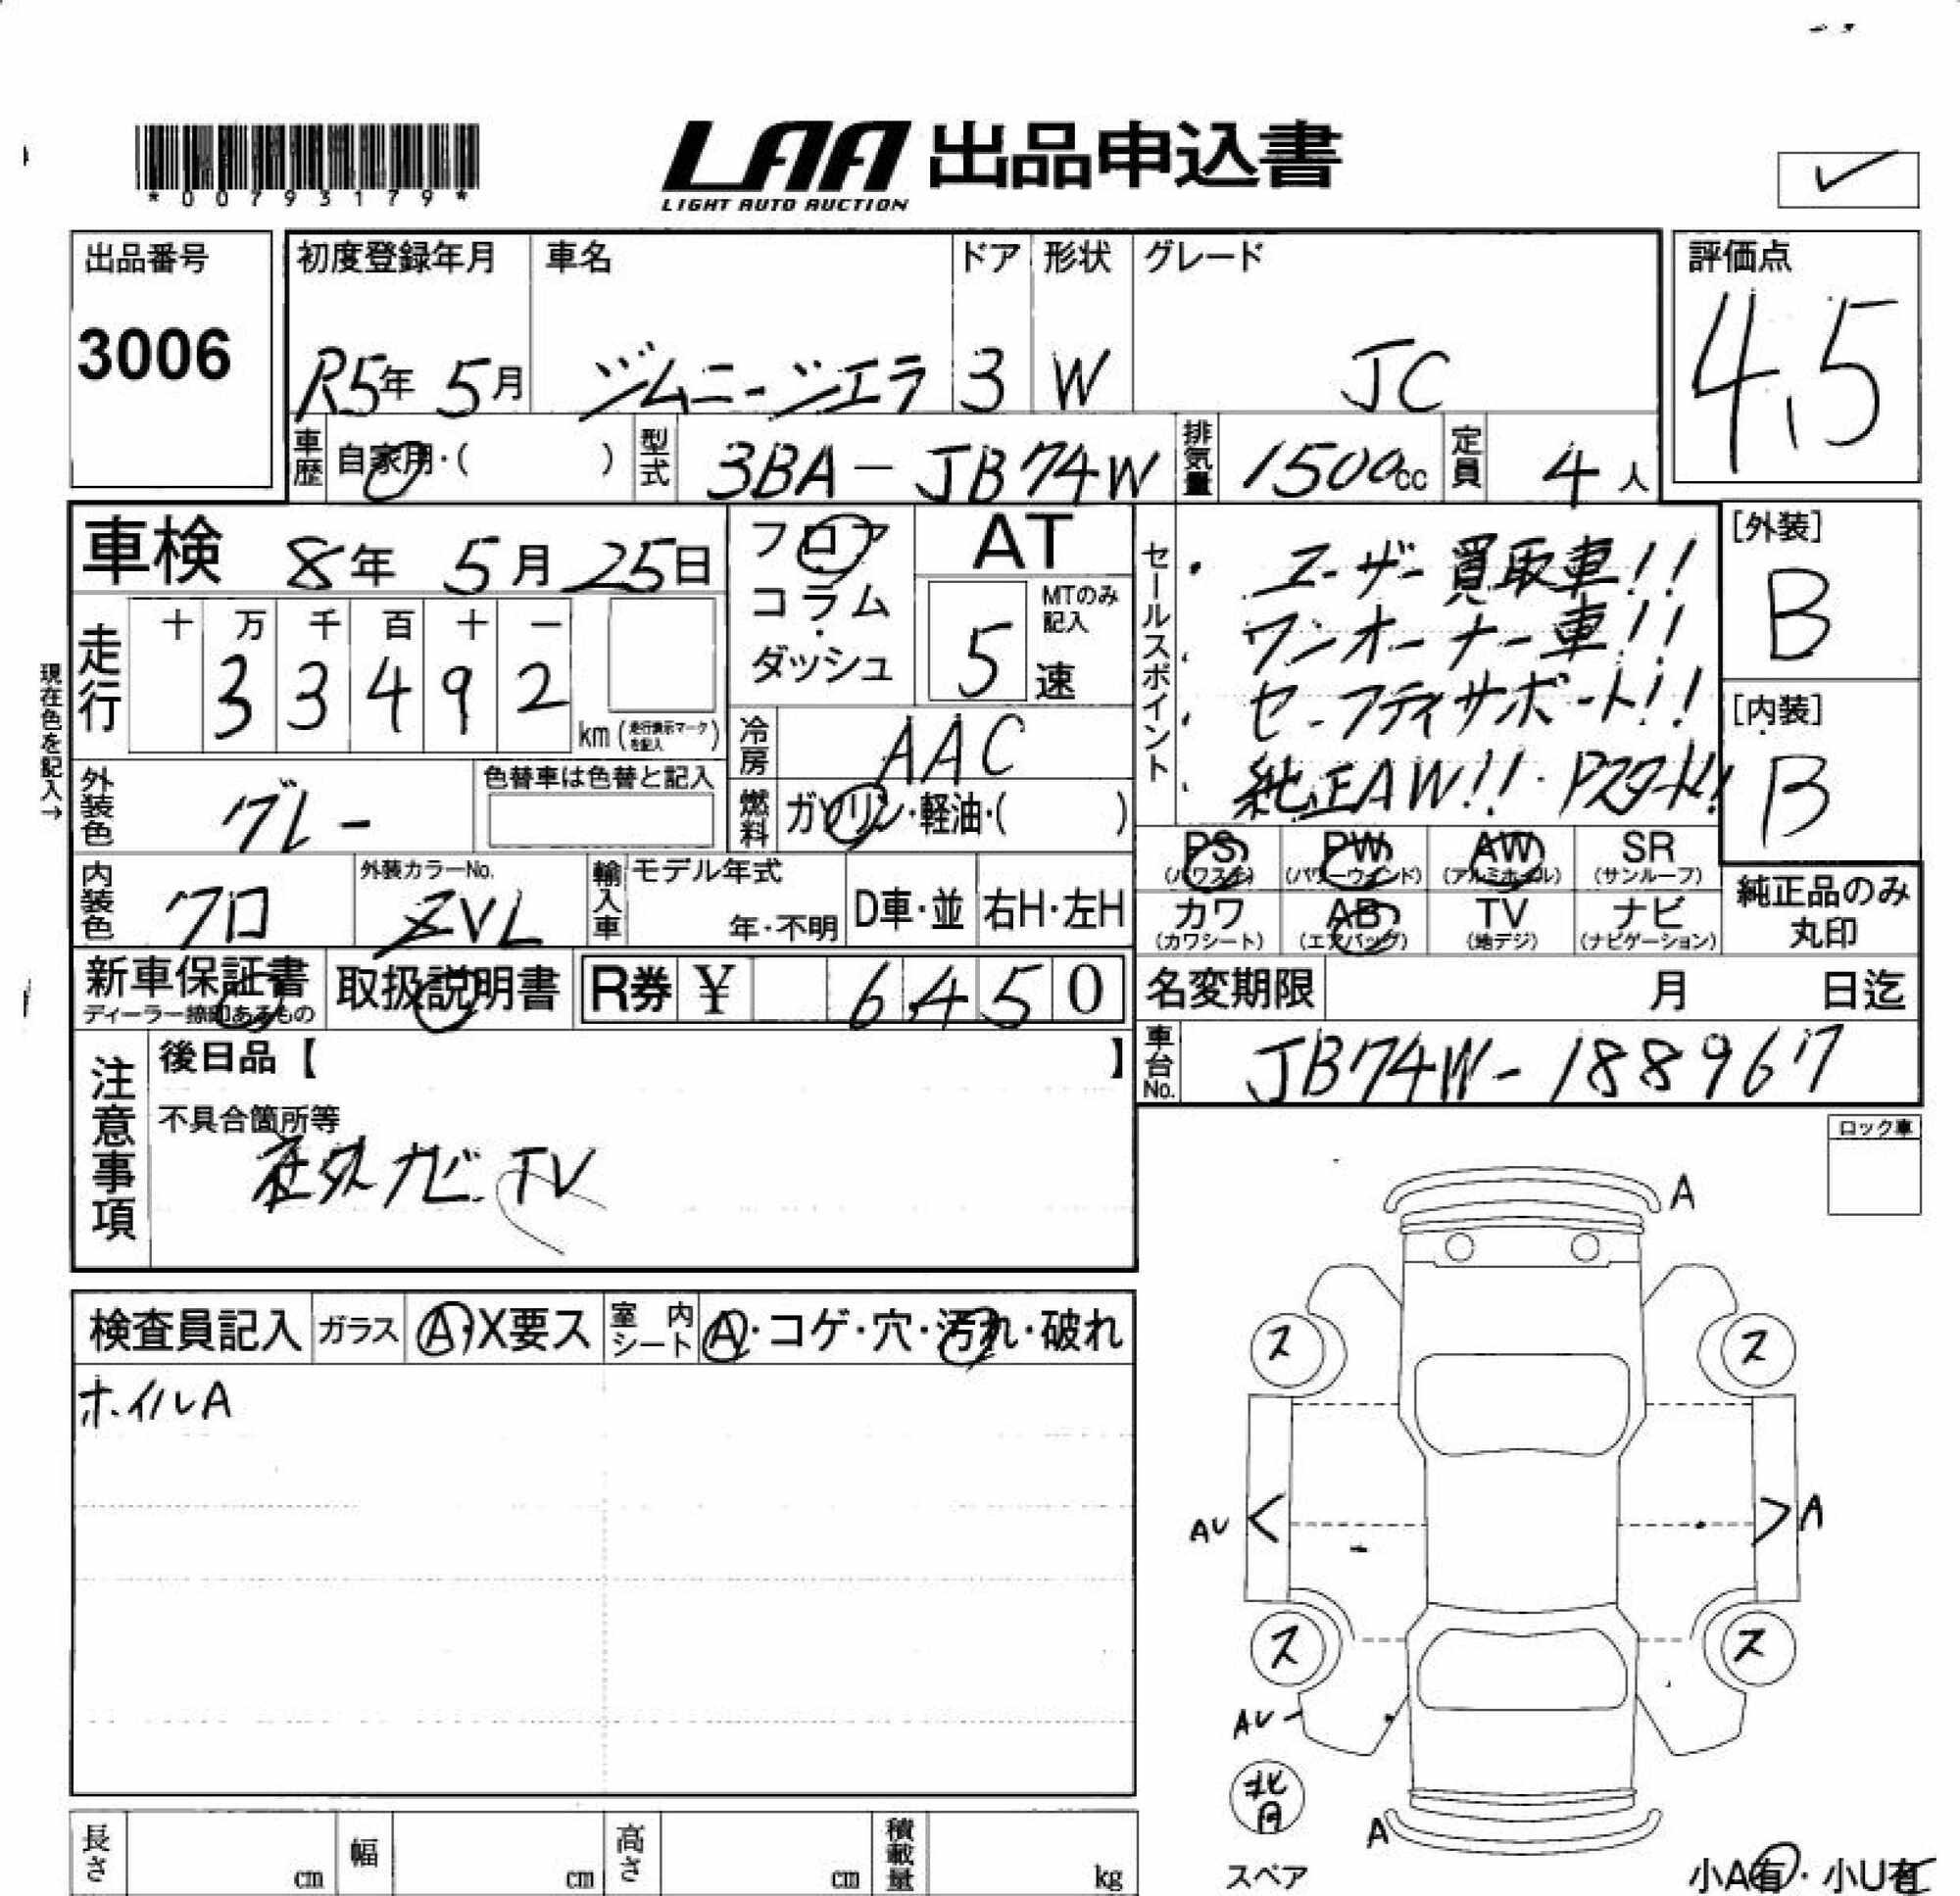 *00793179*
LAA 出品申込書
LIGHT AUTO AUCTION
✓
出品番号
3006
初度登録年月
R5年 5月
車名
ジムニージエラ
ドア
3
形状
W
グレード
JC
評価点
4.5
車歴 自家用・( )
型式 3BA-JB74W
排気量 1500cc
定員 4人
車検 8年 5月 25日
現在色を記入→
走行 十 万 千 百 十 一
3 3 4 9 2
km (走行表示マークを記入)
フロア
コラム
・
ダッシュ
AT
5 速
MTのみ
記入
冷房 AAC
燃料 ガソリン・軽油・( )
外装色 グレー
色替車は色替と記入
内装色 クロ
外装カラーNo.
ZVL
輸入車 モデル年式
年・不明
D車・並
右H・左H
セールスポイント
・ユーザー買取車!!
・ワンオーナー車!!
・セーフティサポート!!
・純正AW!!・Pスタート!
[外装]
B
[内装]
B
PS
(パワステ)
PW
(パワーウインド)
AW
(アルミホイル)
SR
(サンルーフ)
カワ
(カワシート)
AB
(エアバッグ)
TV
(地デジ)
ナビ
(ナビゲーション)
純正品のみ
丸印
新車保証書
ディーラー捺印あるもの
取扱説明書
R券 ¥ 6,450
名変期限 月 日迄
車台No. JB74W-188967
注意事項
後日品【 】
不具合箇所等
社外ナビ.TV
ロック車
検査員記入
ガラス A・X要ス
室内シート A・コゲ・穴・汚れ・破れ
ホイルA
A
ス ス
AU A
ス ス
AU
A
スペア
小A有・小U有
長さ cm
幅 cm
高さ cm
積載量 kg